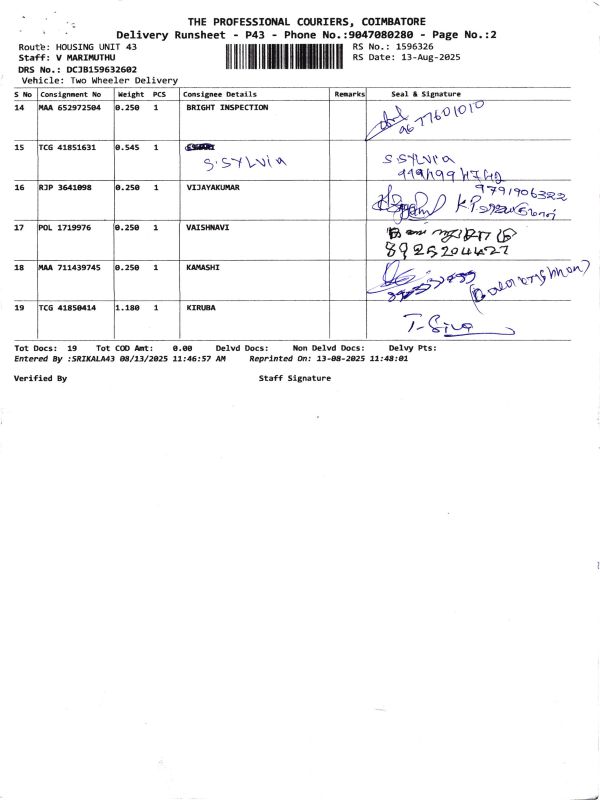 THE PROFESSIONAL COURIERS, COIMBATORE
Delivery Runsheet - P43 - Phone No.:9047080280 - Page No.:2
Route: HOUSING UNIT 43 RS No.: 1596326
Staff: V MARIMUTHU RS Date: 13-Aug-2025
DRS No.: DCJB159632602
Vehicle: Two Wheeler Delivery
S No Consignment No Weight PCS Consignee Details Remarks Seal & Signature
14 MAA 652972504 0.250 1 BRIGHT INSPECTION
9677601010
15 TCG 41851631 0.545 1
S.SYLVIA S SYLVIA
16 RJP 3641098 0.250 1 VIJAYAKUMAR 9791906322
17 POL 1719976 0.250 1 VAISHNAVI
8925204427
18 MAA 711439745 0.250 1 KAMASHI
19 TCG 41850414 1.180 1 KIRUBA
T. Siva
Tot Docs: 19 Tot COD Amt: 0.00 Delvd Docs: Non Delvd Docs: Delvy Pts:
Entered By :SRIKALA43 08/13/2025 11:46:57 AM Reprinted On: 13-08-2025 11:48:01
Verified By Staff Signature